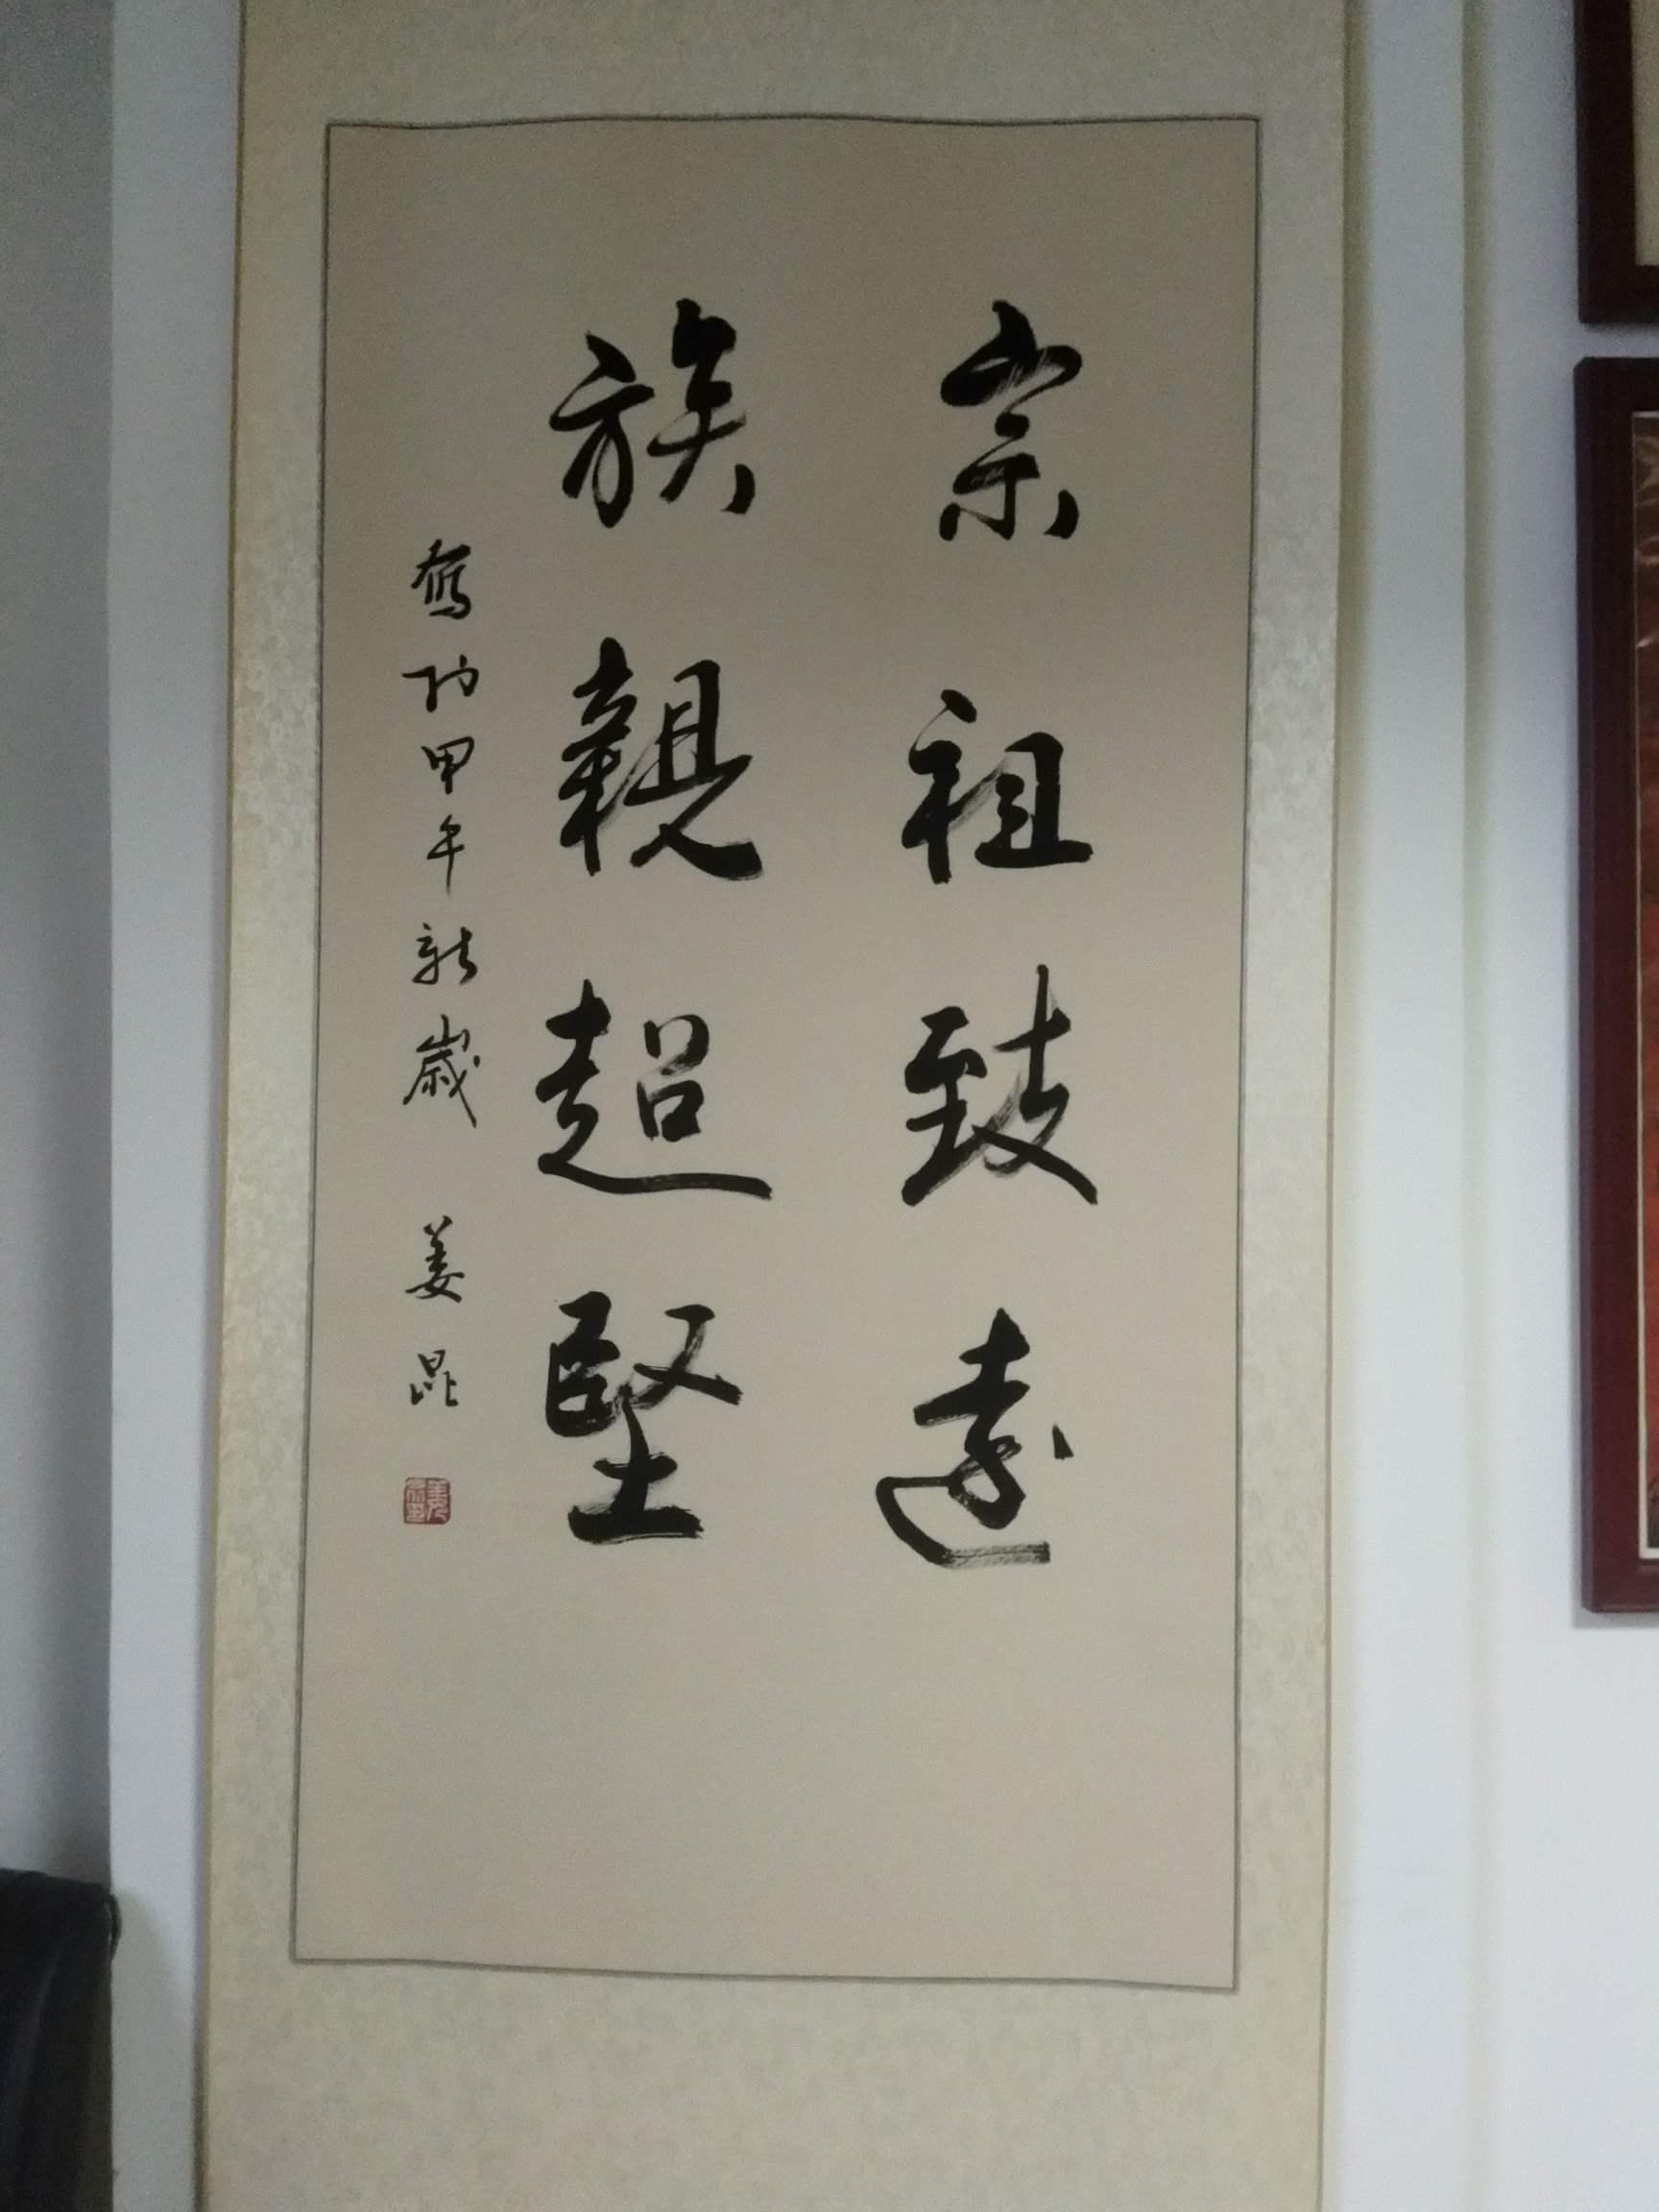 宗祖致遠
族親超堅
甲午新歲 姜昆